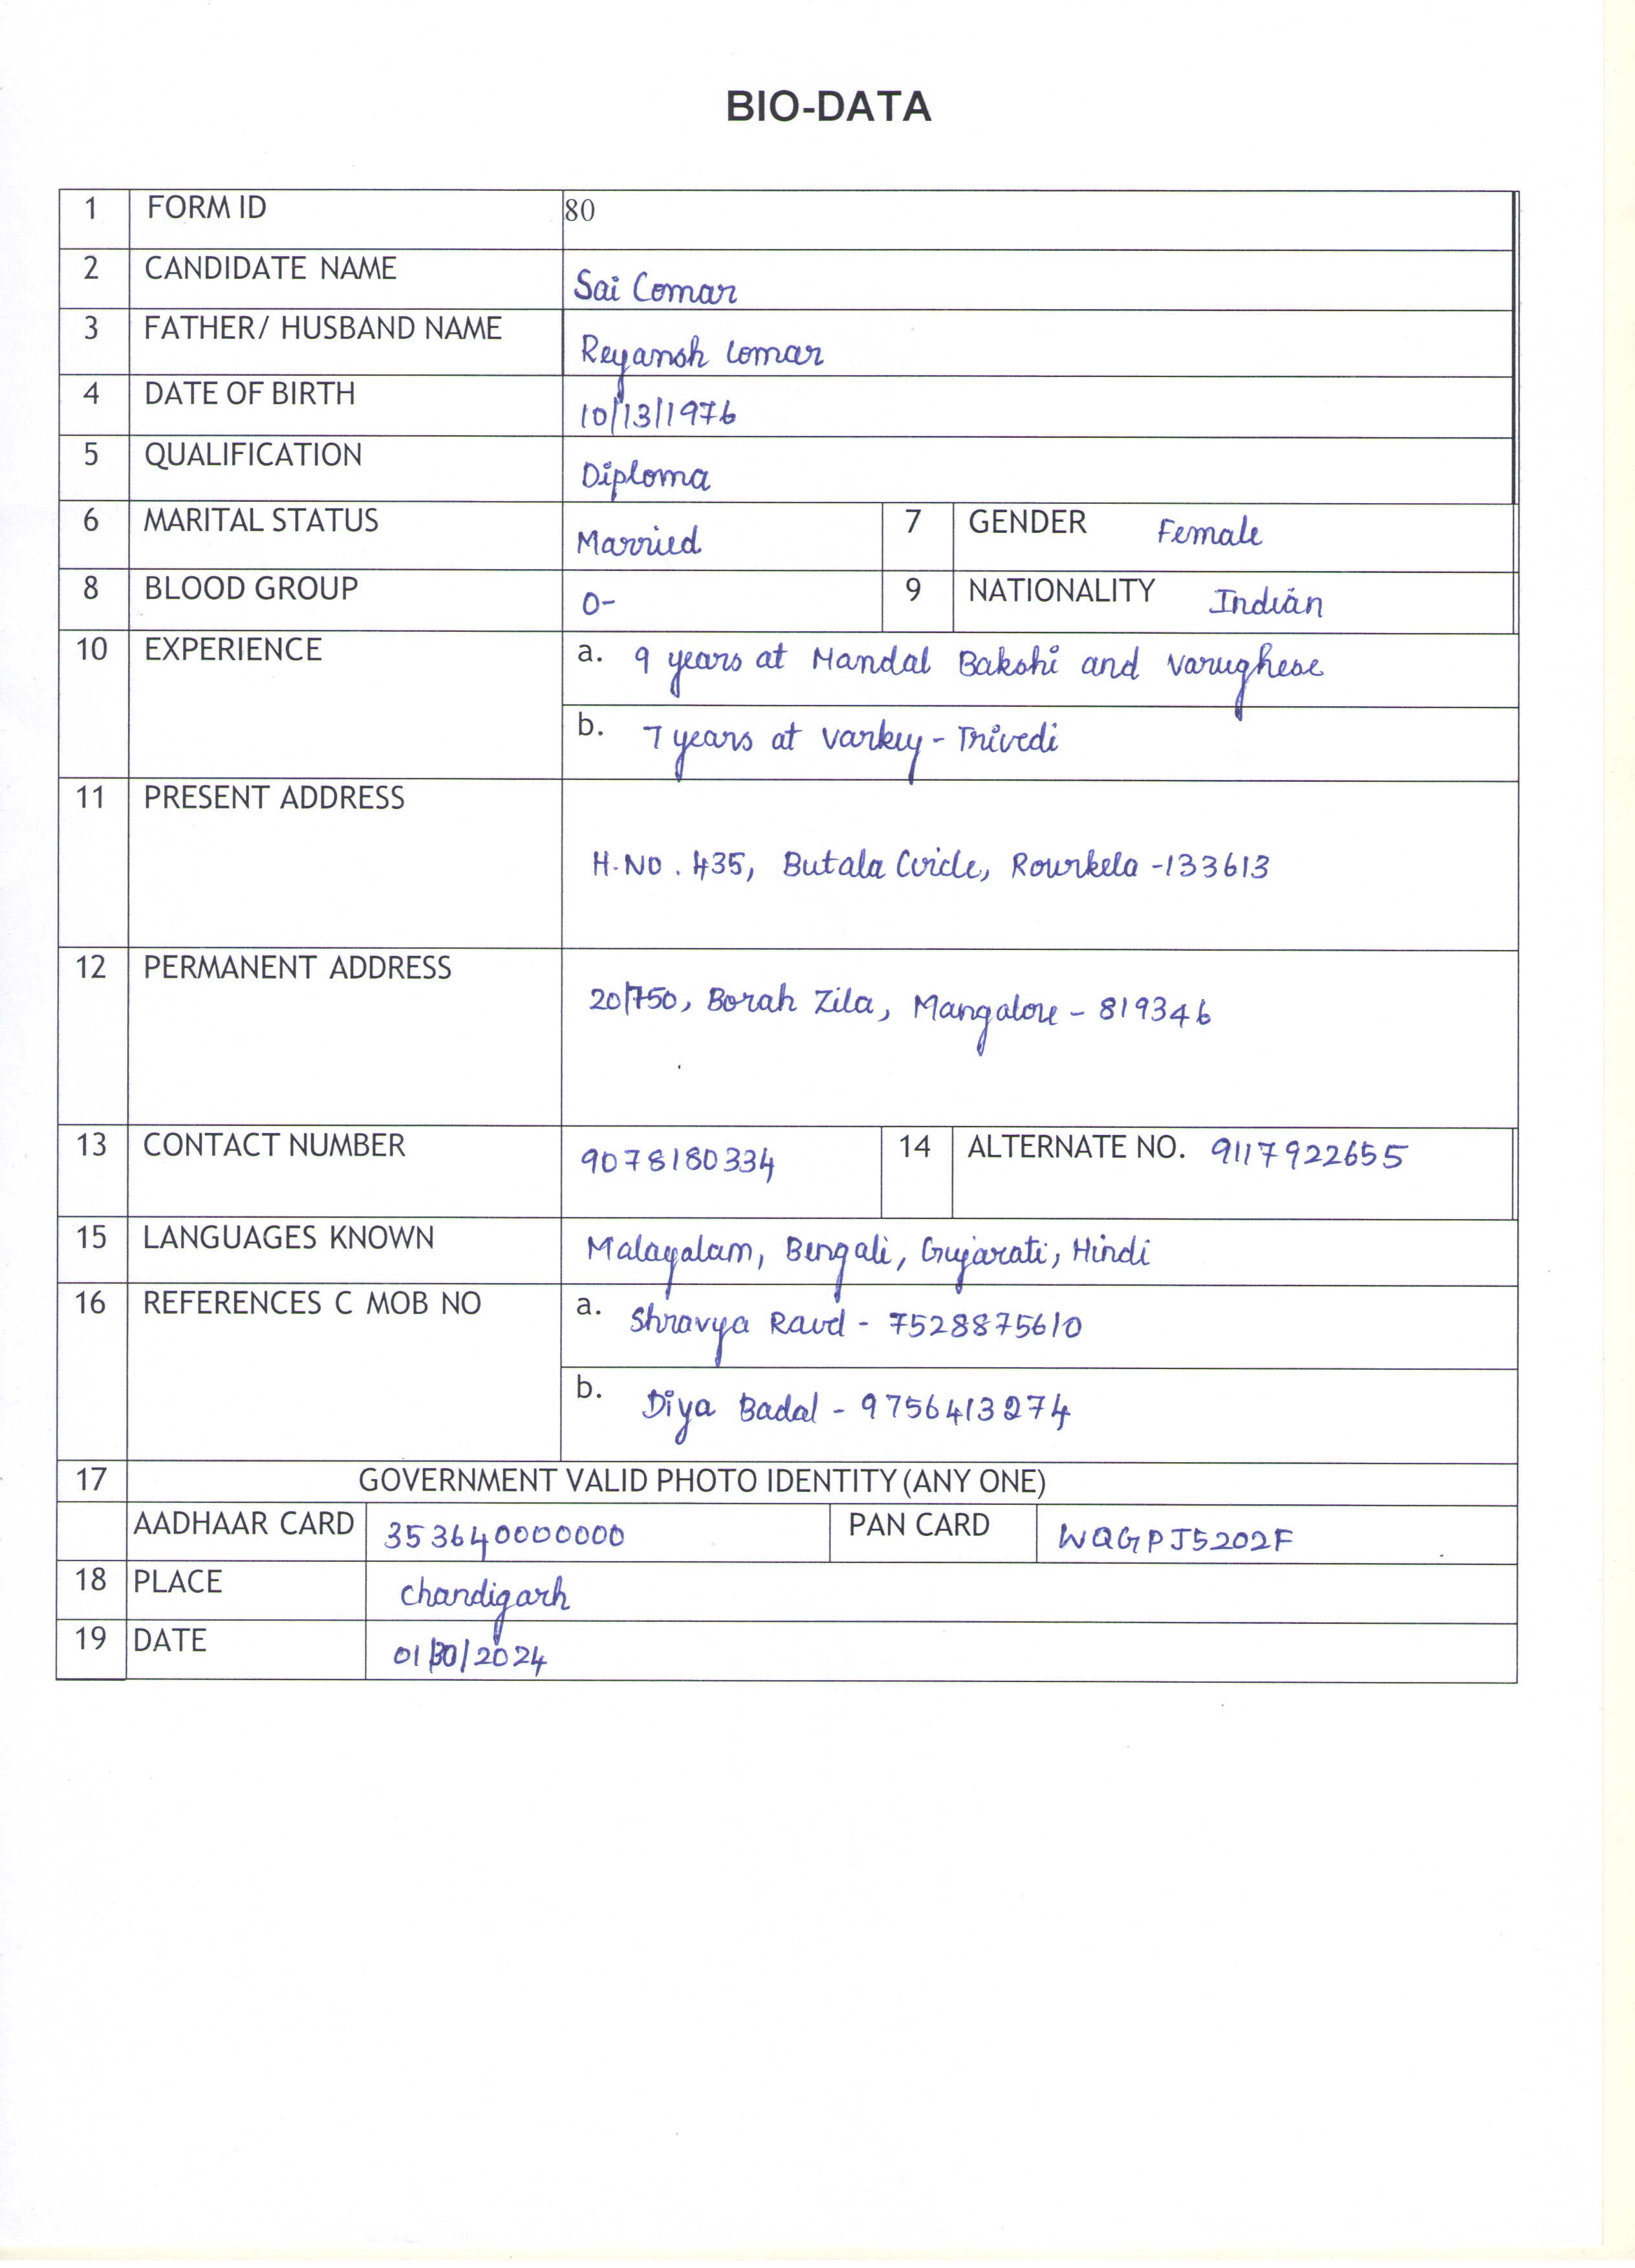 BIO-DATA
1 FORM ID 80
2 CANDIDATE NAME Sai Comar
3 FATHER/ HUSBAND NAME Reyansh Comar
4 DATE OF BIRTH 10/13/1976
5 QUALIFICATION Diploma
6 MARITAL STATUS Married 7 GENDER Female
8 BLOOD GROUP O- 9 NATIONALITY Indian
10 EXPERIENCE a. 9 years at Mandal Bakshi and Varughese
b. 7 years at Varkey - Trivedi
11 PRESENT ADDRESS
H.NO. 435, Butala Circle, Rourkela -133613
12 PERMANENT ADDRESS
20/750, Borah Zila, Mangalore - 819346
13 CONTACT NUMBER 9078180334 14 ALTERNATE NO. 9117922655
15 LANGUAGES KNOWN Malayalam, Bengali, Gujarati, Hindi
16 REFERENCES C MOB NO a. Shravya Raud - 7528875610
b. Diya Badal - 9756413274
17 GOVERNMENT VALID PHOTO IDENTITY (ANY ONE)
AADHAAR CARD 353640000000 PAN CARD WQGPJ5202F
18 PLACE Chandigarh
19 DATE 01/30/2024